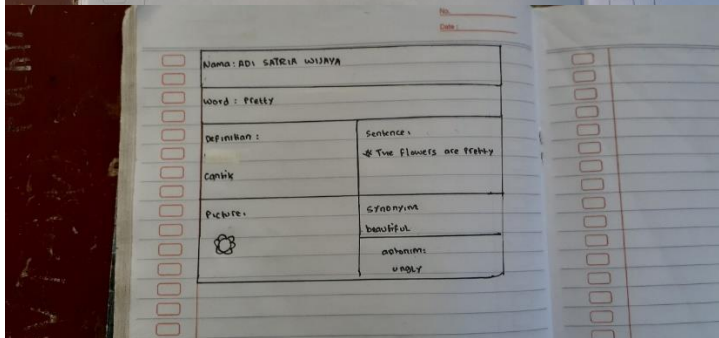 No.
Date:
Nama: ADI SATRIA WIJAYA
Word: Pretty
Definition:
Cantik
Sentence:
* The Flowers are Pretty
Picture:
Synonyim
beautiful
antonim:
ungly